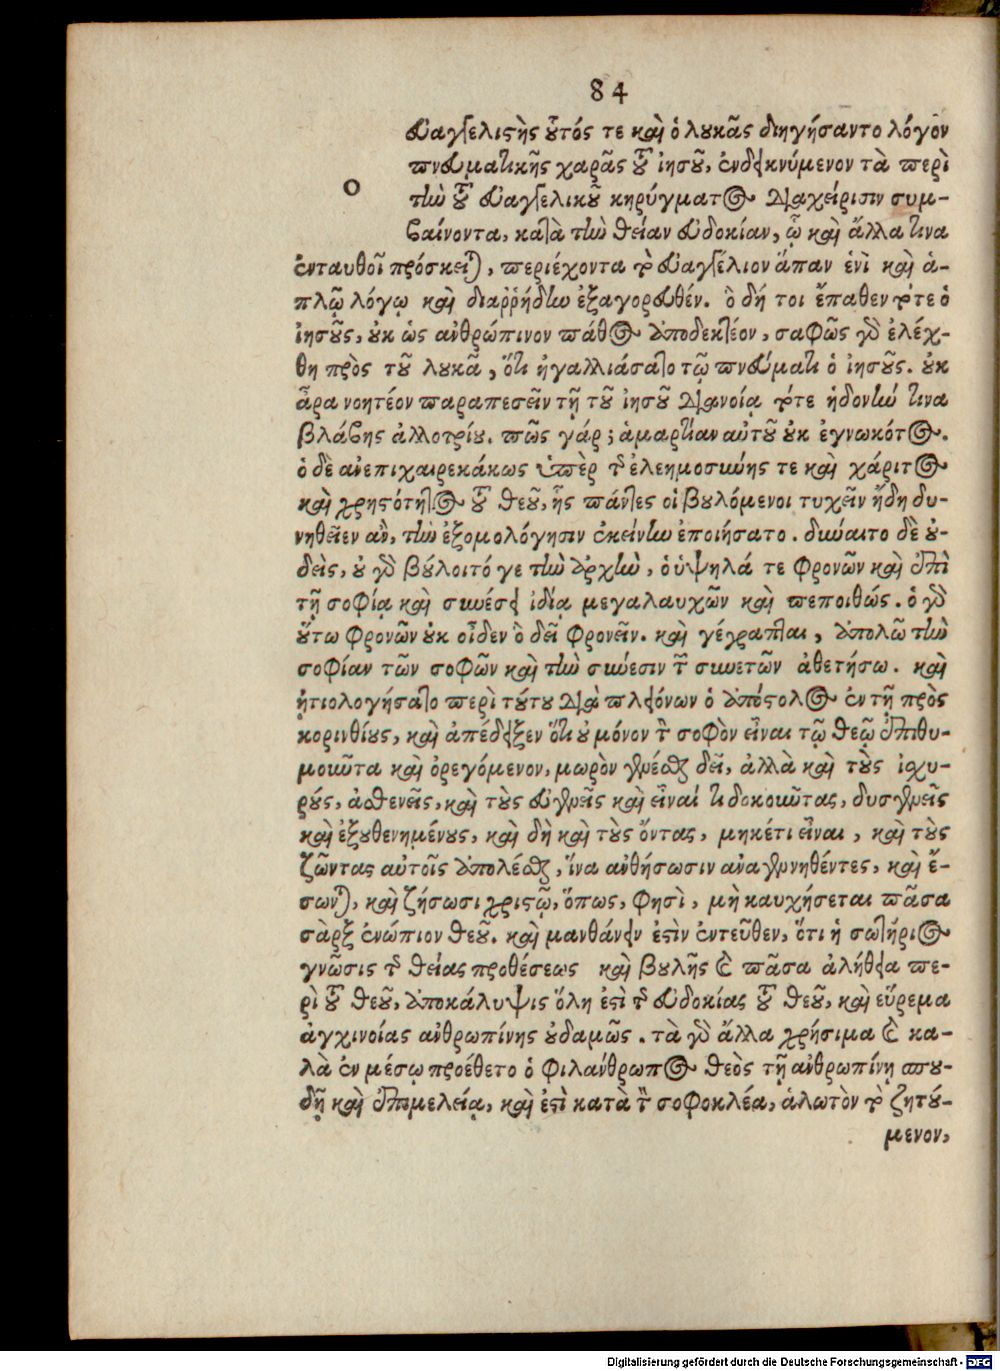 84
εὐαγγελιστὴς οὗτός τε καὶ ὁ λουκᾶς διηγήσαντο λόγον
πνευματικῆς χαρᾶς τοῦ ἰησοῦ, ἐνδεικνύμενον τὰ περὶ
ο
τὴν τοῦ εὐαγγελικοῦ κηρύγματος διαχείρισιν συμ-
βαίνοντα, κατὰ τὴν θείαν εὐδοκίαν, ᾧ καὶ ἄλλα τινα
ἐνταυθοῖ πρόσκειται, περιέχοντα τὸ εὐαγγέλιον ἅπαν ἑνὶ καὶ ἁ-
πλῷ λόγῳ καὶ διαῤῥήδην ἐξαγορευθέν. ὃ δή τοι ἔπαθεν τότε ὁ
ἰησοῦς, οὐκ ὡς ἀνθρώπινον πάθος ἀποδεκτέον, σαφῶς γὰρ ἐλέχ-
θη πρὸς τοῦ λουκᾶ, ὅτι ἠγαλλιάσατο τῷ πνεύματι ὁ ἰησοῦς. οὐκ
ἆρα νοητέον παραπεσεῖν τῇ τοῦ ἰησοῦ διανοίᾳ τότε ἡδονήν τινα
βλάβης ἀλλοτρίου. πῶς γάρ; ἁμαρτίαν αὐτοῦ οὐκ ἐγνωκότος.
ὁ δὲ ἀνεπιχαιρεκάκως ὑπὲρ τῆς ἐλεημοσύνης τε καὶ χάριτος
καὶ χρηστότητος τοῦ θεοῦ, ἧς πάντες οἱ βουλόμενοι τυχεῖν ἤδη δυ-
νηθεῖεν ἂν, τὴν ἐξομολόγησιν ἐκείνην ἐποιήσατο. δύναιτο δὲ οὐ-
δεὶς, οὐ γὰρ βούλοιτό γε τὴν ἀρχὴν, ὁ ὑψηλά τε φρονῶν καὶ ἐπὶ
τῇ σοφίᾳ καὶ συνέσει ἰδίᾳ μεγαλαυχῶν καὶ πεποιθώς. ὁ γὰρ
οὕτω φρονῶν οὐκ οἶδεν ὃ δεῖ φρονεῖν. καὶ γέγραπται, ἀπολῶ τὴν
σοφίαν τῶν σοφῶν καὶ τὴν σύνεσιν τῶν συνετῶν ἀθετήσω. καὶ
ᾐτιολογήσατο περὶ τούτου διὰ πλειόνων ὁ ἀπόστολος ἐν τῇ πρὸς
κορινθίους, καὶ ἀπέδειξεν ὅτι οὐ μόνον τὸν σοφὸν εἶναι τῷ θεῷ ἐπιθυ-
μοῦντα καὶ ὀρεγόμενον, μωρὸν γενέσθαι δεῖ, ἀλλὰ καὶ τοὺς ἰσχυ-
ρούς, ἀσθενεῖς, καὶ τοὺς εὐγενεῖς καὶ εἶναί τι δοκοῦντας, δυσγενεῖς
καὶ ἐξουθενημένους, καὶ δὴ καὶ τοὺς ὄντας, μηκέτι εἶναι, καὶ τοὺς
ζῶντας αὐτοῖς ἀπολέσθαι, ἵνα ἀνθήσωσιν ἀναγεννηθέντες, καὶ ἔ-
σωνται, καὶ ζήσωσι χριστῷ, ὅπως, φησὶ, μὴ καυχήσεται πᾶσα
σὰρξ ἐνώπιον θεοῦ. καὶ μανθάνειν ἐστὶν ἐντεῦθεν, ὅτι ἡ σωτήριος
γνῶσις τῆς θείας προθέσεως καὶ βουλῆς καὶ πᾶσα ἀλήθεια πε-
ρὶ τοῦ θεοῦ, ἀποκάλυψις ὅλη ἐστὶ τῆς εὐδοκίας τοῦ θεοῦ, καὶ εὕρεμα
ἀγχινοίας ἀνθρωπίνης οὐδαμῶς. τὰ γὰρ ἄλλα χρήσιμα καὶ κα-
λὰ ἐν μέσῳ προέθετο ὁ φιλάνθρωπος θεὸς τῇ ἀνθρωπίνῃ σπου-
δῇ καὶ ἐπιμελείᾳ, καὶ ἐστὶ κατὰ τὸν σοφοκλέα, ἁλωτὸν τὸ ζητού-
μενον,
Digitalisierung gefördert durch die Deutsche Forschungsgemeinschaft - DFG